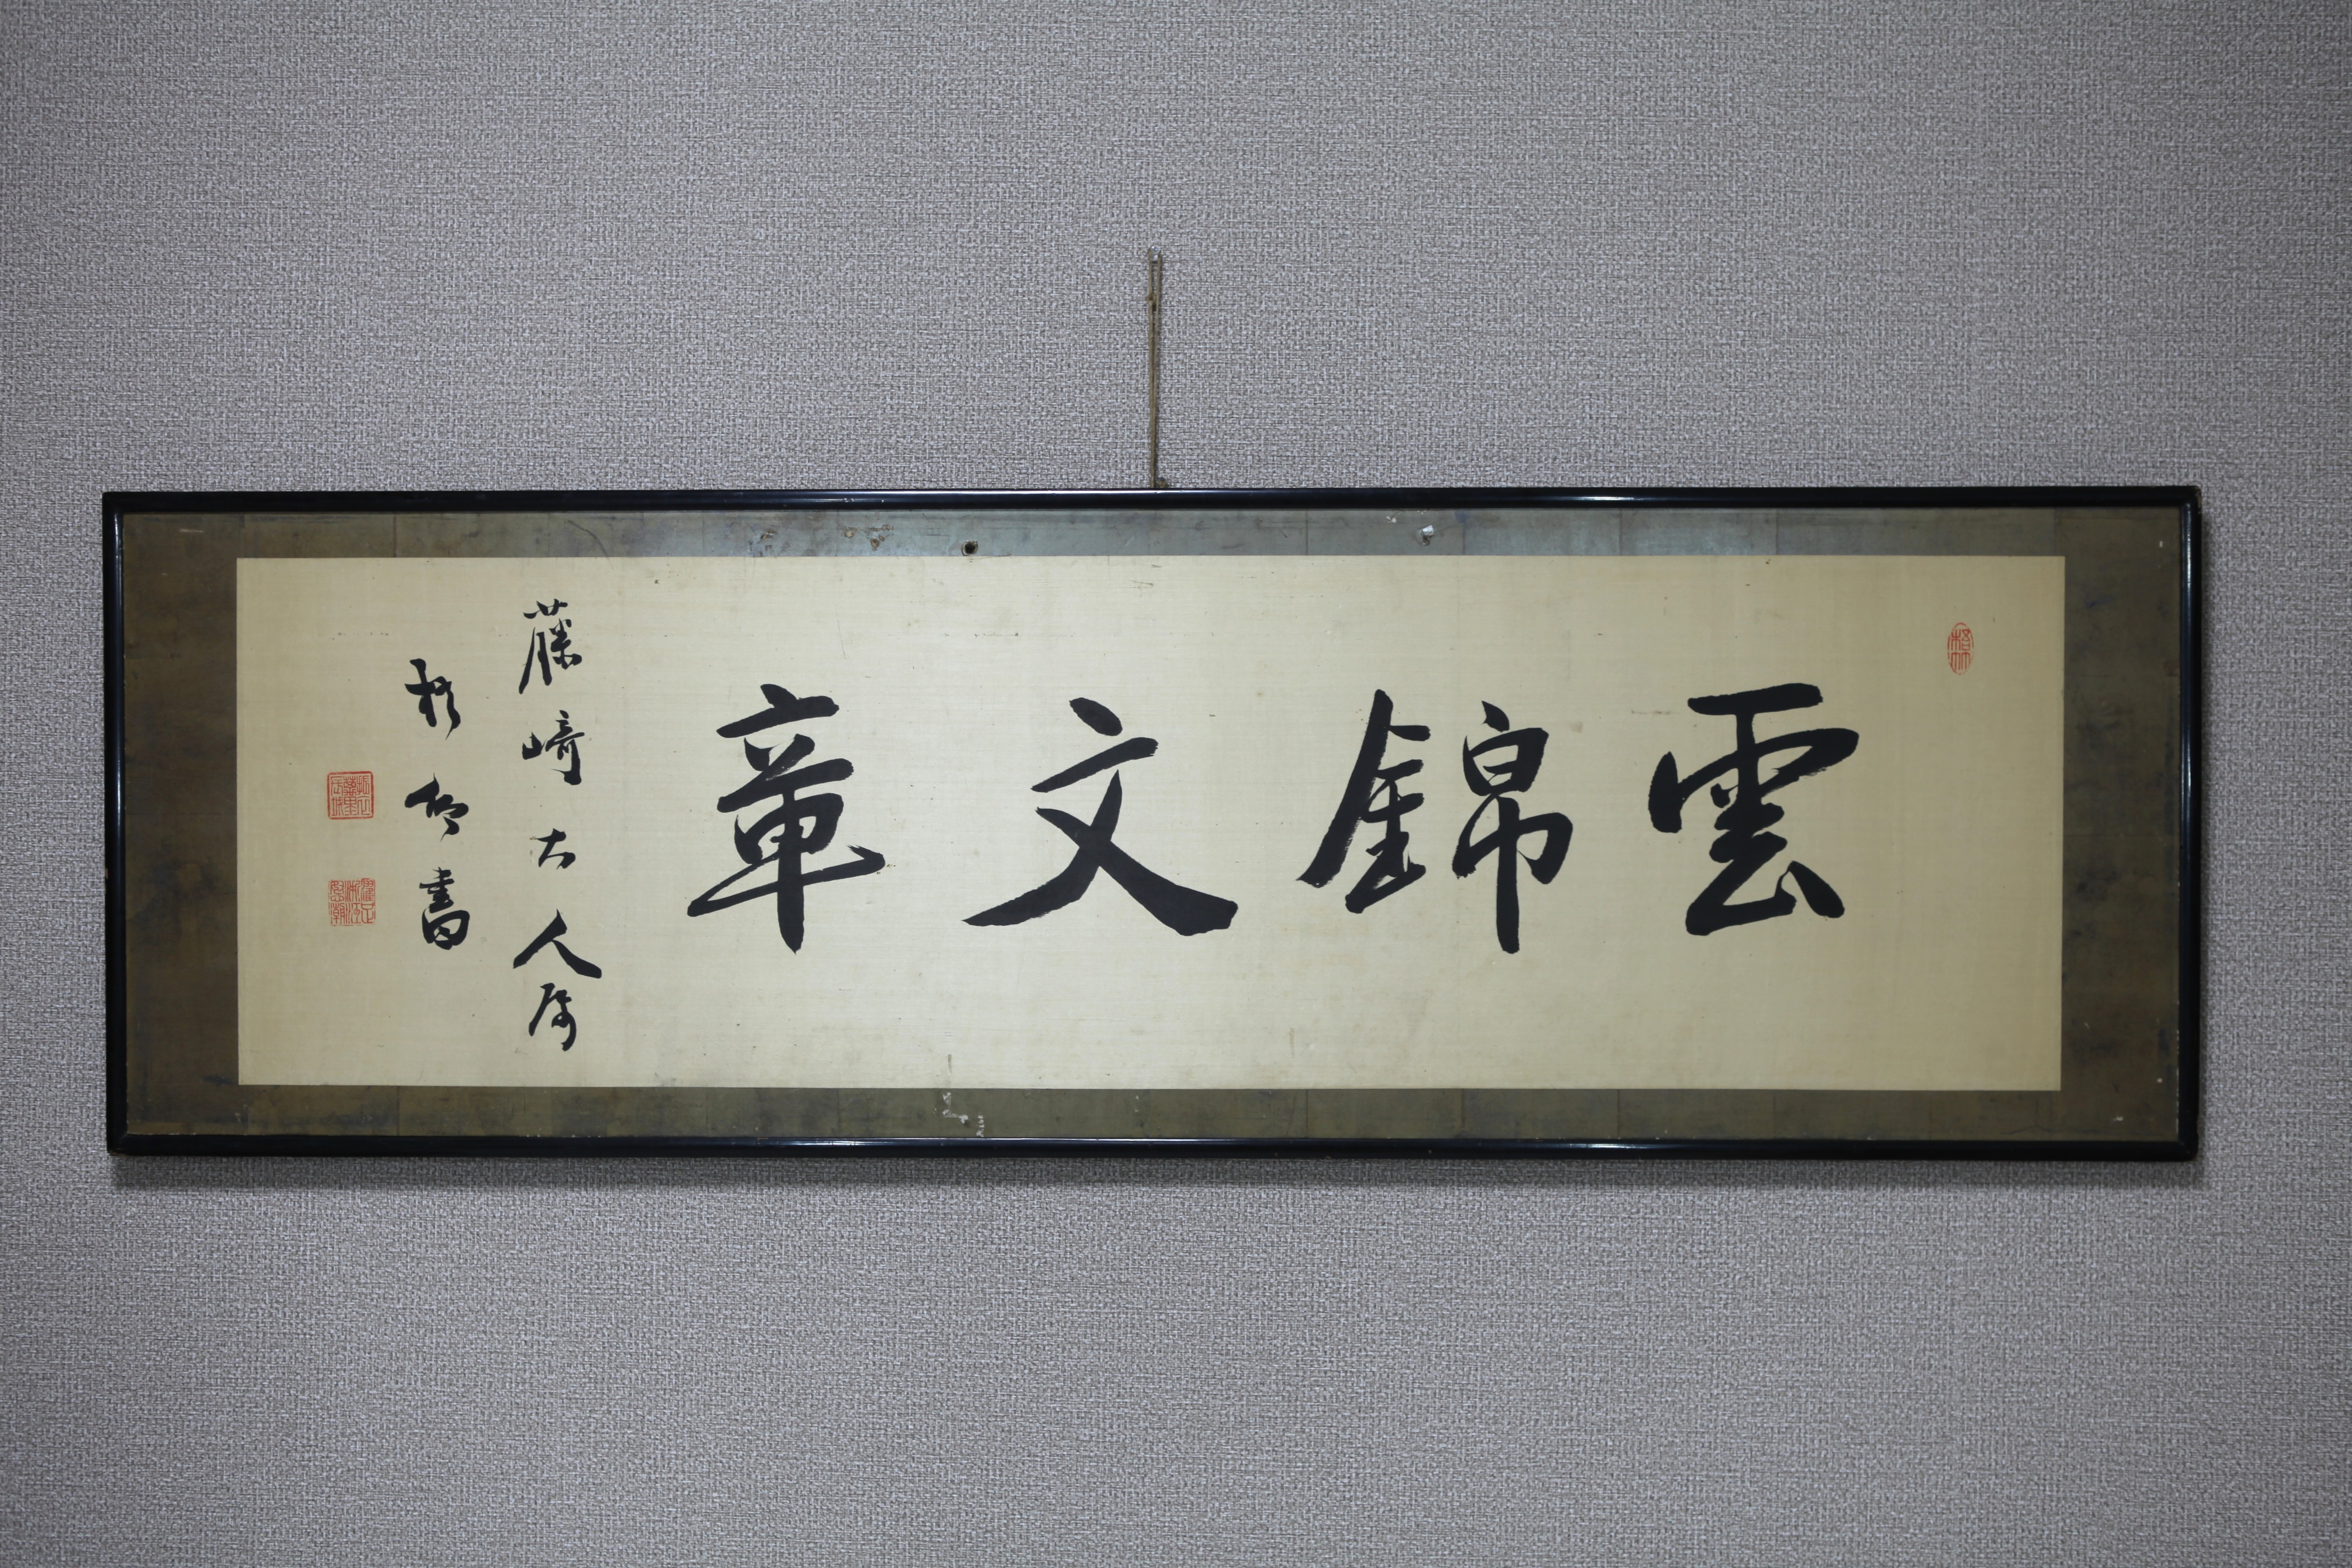 雲錦文章
藤﨑大人属
書